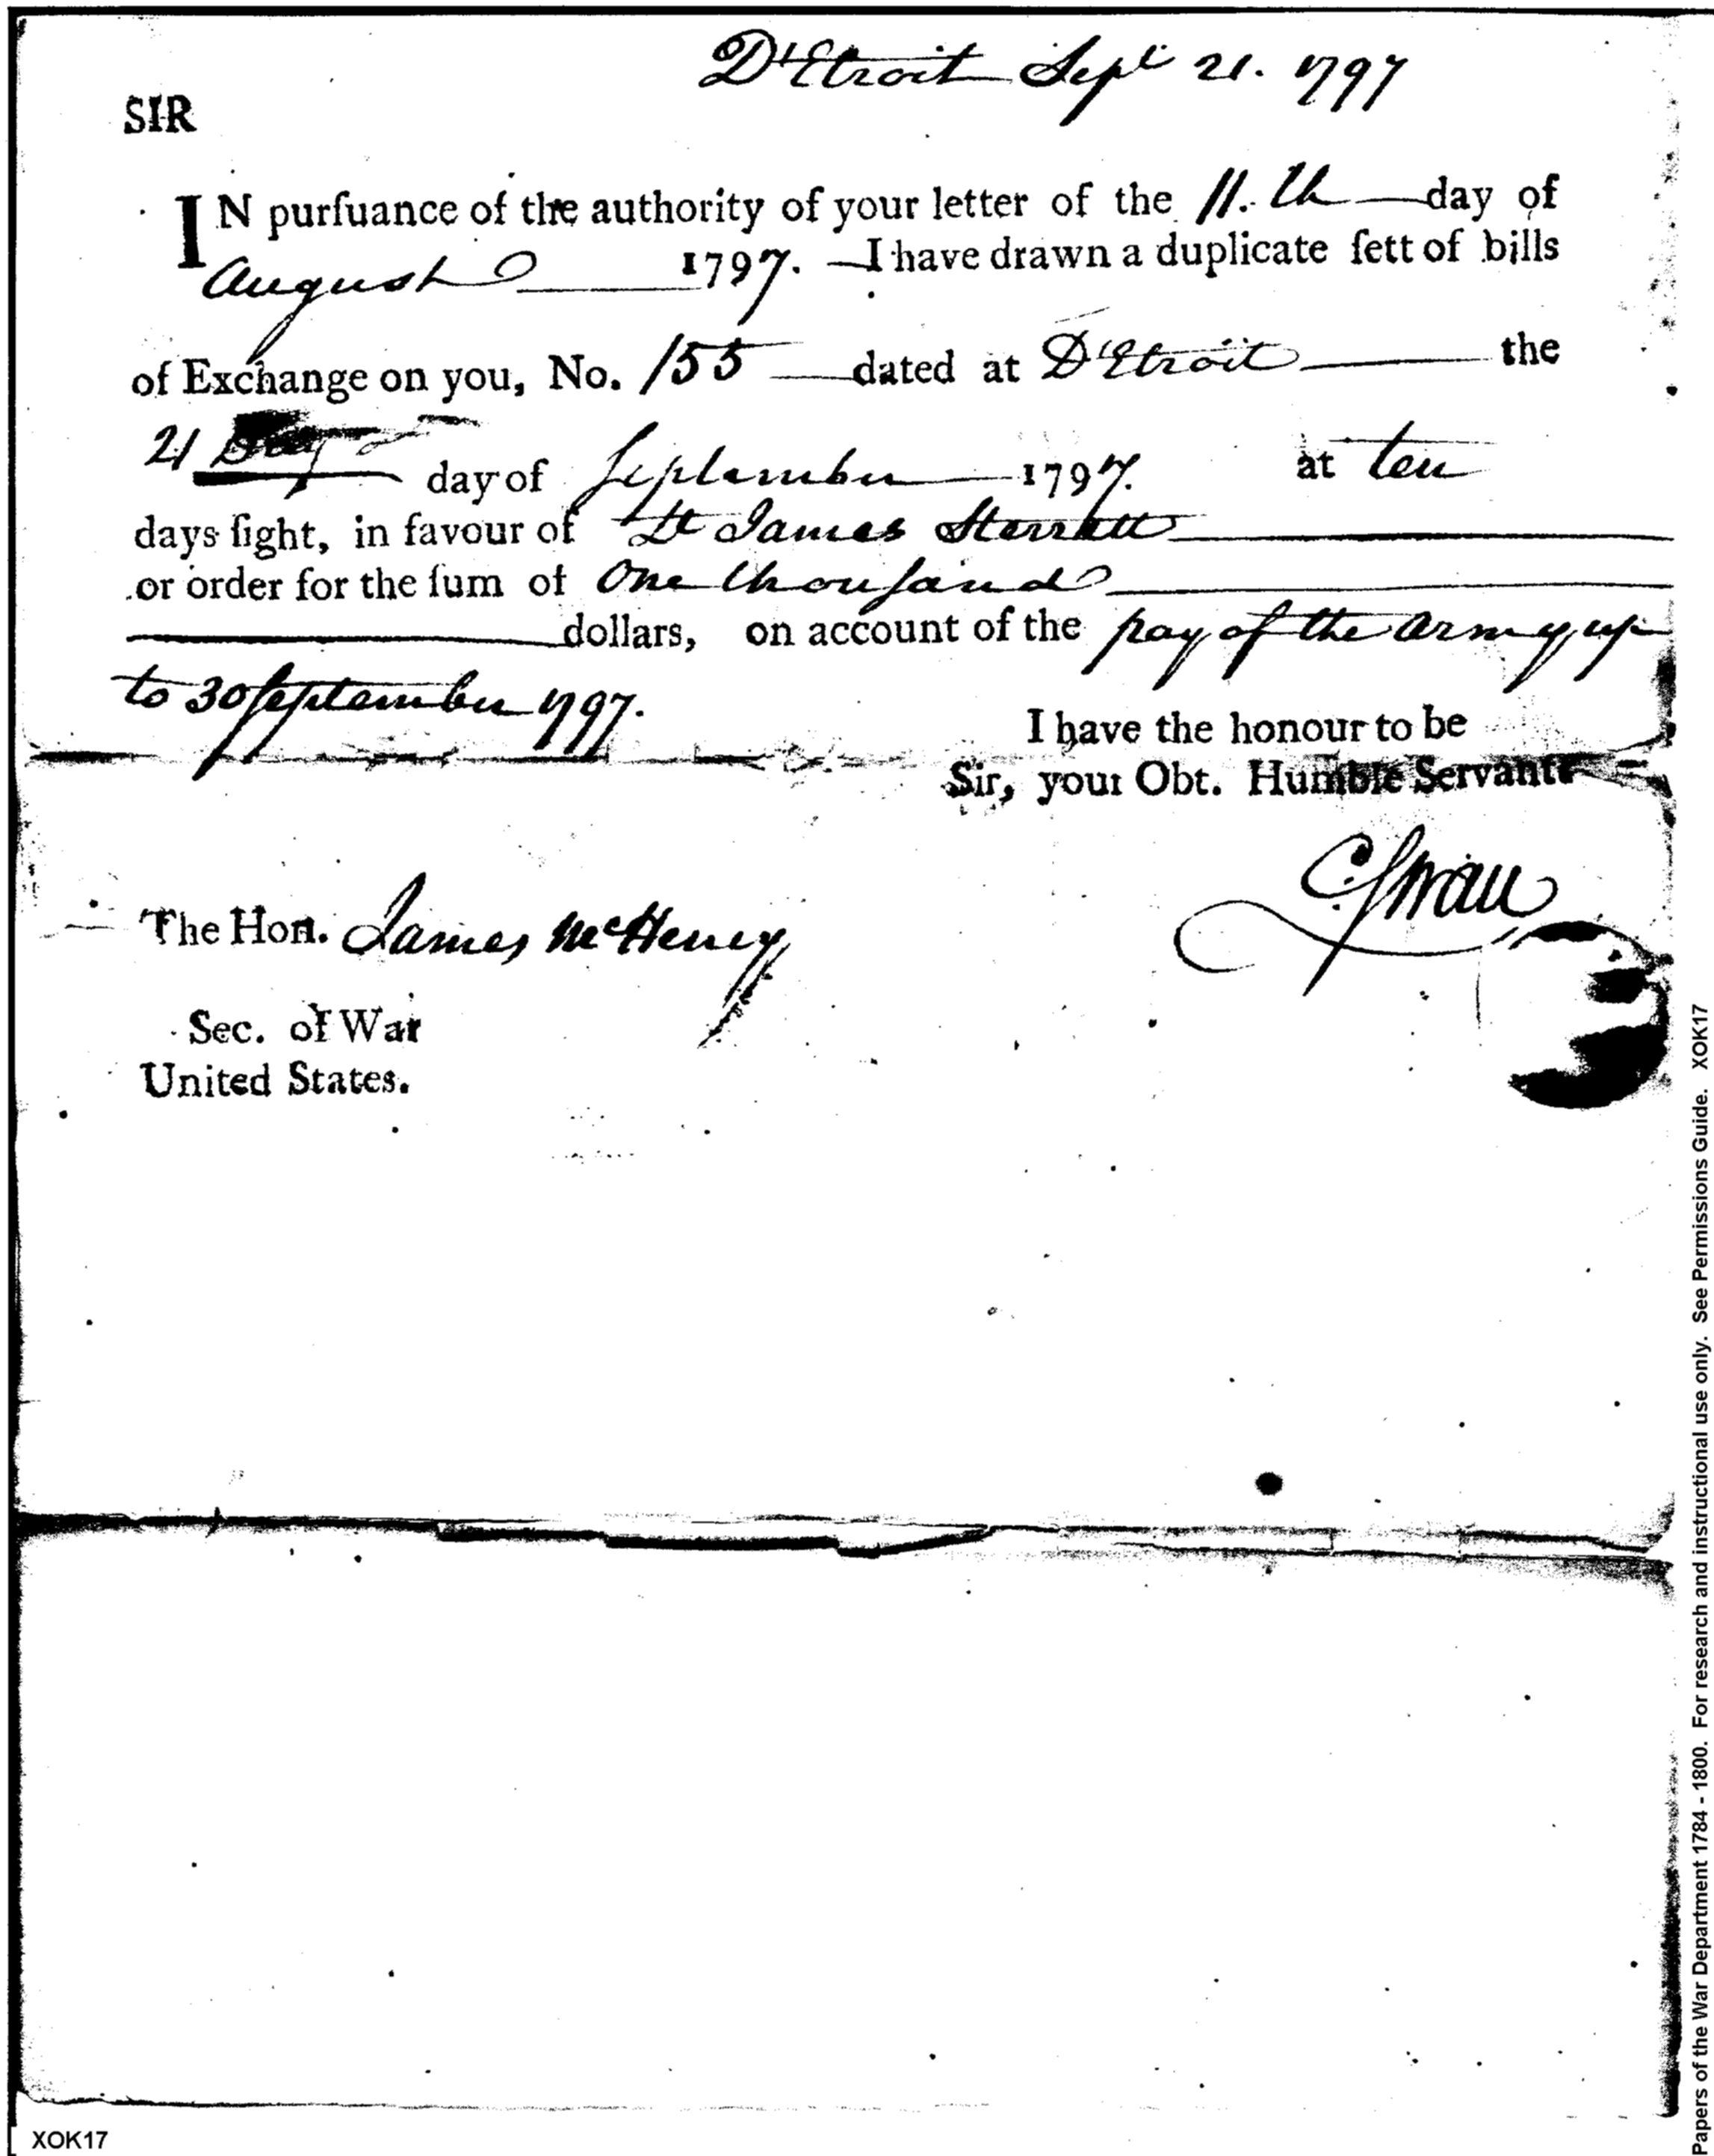 D'Etroit Sept 21. 1797
SIR
IN purſuance of the authority of your letter of the 11.th day of
August 1797. I have drawn a duplicate ſett of bills
of Exchange on you, No. 155 dated at D'Etroit the
21 day of September 1797. at ten
days ſight, in favour of Lt James Sterrett
or order for the ſum of One thouſand
dollars, on account of the pay of the Army up
to 30 September 1797.
I have the honour to be
Sir, your Obt. Humble Servant
C. Swan
The Hon. James McHenry
Sec. of War
United States.
XOK17
Papers of the War Department 1784 - 1800. For research and instructional use only. See Permissions Guide. XOK17